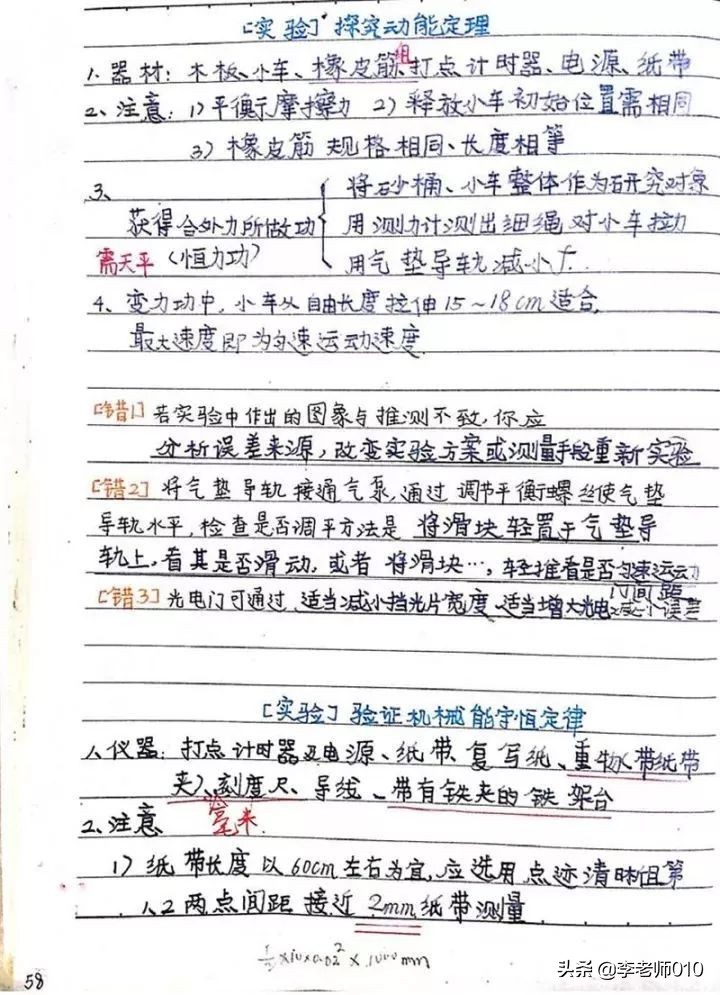 [实验] 探究动能定理
1、器材：木板、小车、橡皮筋组、打点计时器、电源、纸带
2、注意：1) 平衡摩擦力 2) 释放小车初始位置需相同
3) 橡皮筋规格相同、长度相等
3、
将砂桶、小车整体作为研究对象
获得合外力所做功 用测力计测出细绳对小车拉力
需天平 (恒力功) 用气垫导轨减小f
4、变力功中，小车从自由长度拉伸15~18cm适合
最大速度即为匀速运动速度
[错1] 若实验中作出的图象与推测不致，你应
分析误差来源，改变实验方案或测量手段重新实验
[错2] 将气垫导轨接通气泵，通过调节平衡螺丝使气垫
导轨水平，检查是否调平方法是 将滑块轻置于气垫导
轨上，看其是否滑动，或者 将滑块…，轻推看是否匀速运动
[错3] 光电门可通过 适当减小挡光片宽度、适当增大光电门间距减小误差
[实验] 验证机械能守恒定律
1、仪器：打点计时器及电源、纸带、复写纸、重物(带纸带
夹)、刻度尺、导线、带有铁夹的铁架台
毫米
2、注意
1) 纸带长度以60cm左右为宜，应选用点迹清晰且第
1、2两点间距接近2mm纸带测量
½×10×0.02²×1000mm
58
头条 @李老师010